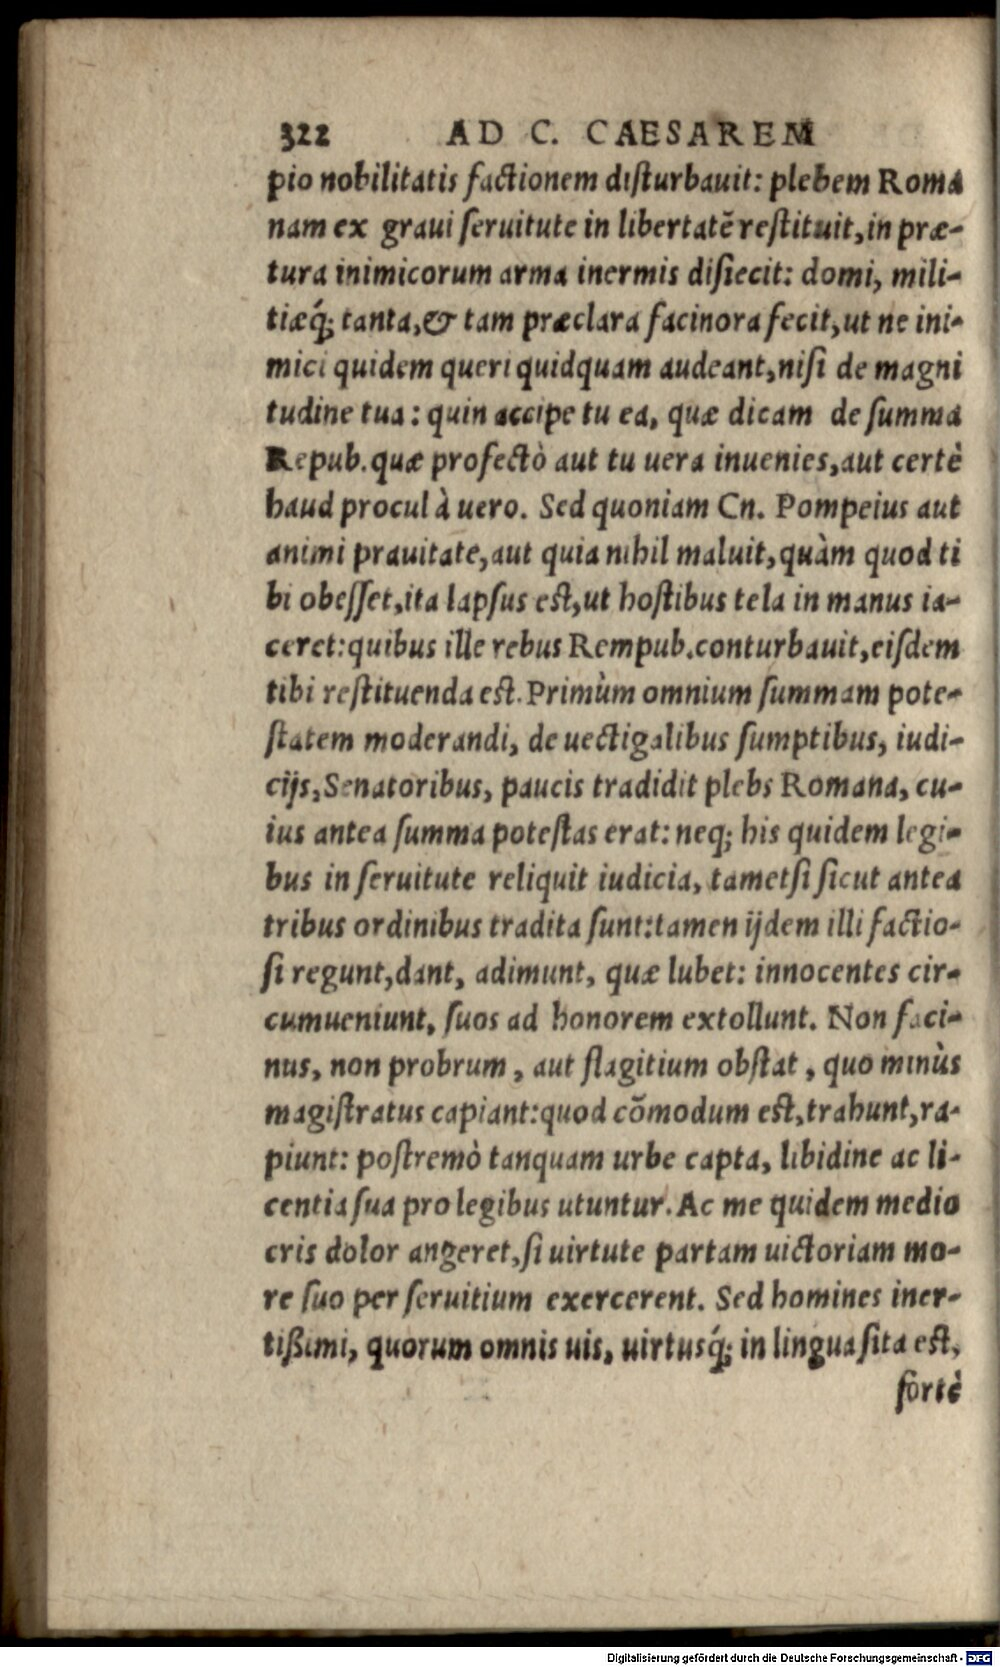 322 AD C. CAESAREM
pio nobilitatis factionem disturbauit: plebem Roma
nam ex graui seruitute in libertatē restituit, in præ-
tura inimicorum arma inermis disiecit: domi, mili-
tiæq́; tanta, & tam præclara facinora fecit, ut ne ini-
mici quidem queri quidquam audeant, nisi de magni
tudine tua: quin accipe tu ea, quæ dicam de summa
Repub. quæ profectò aut tu uera inuenies, aut certè
haud procul à uero. Sed quoniam Cn. Pompeius aut
animi prauitate, aut quia nihil maluit, quàm quod ti
bi obesset, ita lapsus est, ut hostibus tela in manus ia-
ceret: quibus ille rebus Rempub. conturbauit, eisdem
tibi restituenda est. Primùm omnium summam pote-
statem moderandi, de uectigalibus sumptibus, iudi-
cijs, Senatoribus, paucis tradidit plebs Romana, cu-
ius antea summa potestas erat: neq; his quidem legi-
bus in seruitute reliquit iudicia, tametsi sicut antea
tribus ordinibus tradita sunt: tamen ijdem illi factio-
si regunt, dant, adimunt, quæ lubet: innocentes cir-
cumueniunt, suos ad honorem extollunt. Non faci-
nus, non probrum, aut flagitium obstat, quo minùs
magistratus capiant: quod cōmodum est, trahunt, ra-
piunt: postremò tanquam urbe capta, libidine ac li-
centia sua pro legibus utuntur. Ac me quidem medio
cris dolor angeret, si uirtute partam uictoriam mo-
re suo per seruitium exercerent. Sed homines iner-
tißimi, quorum omnis uis, uirtusq́; in lingua sita est,
fortè
Digitalisierung gefördert durch die Deutsche Forschungsgemeinschaft - DFG